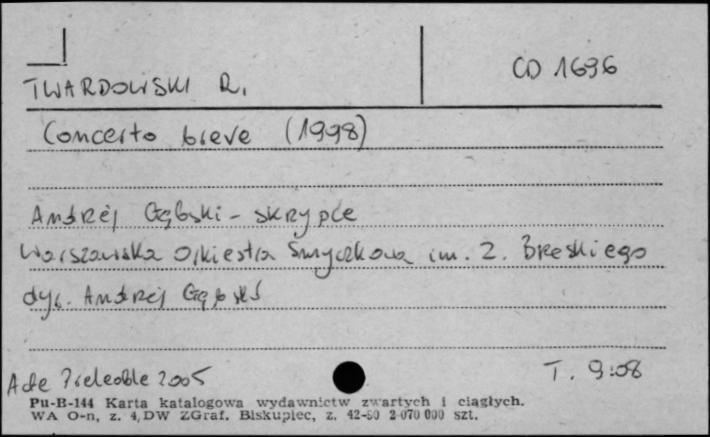 TWARDOWSKI R.
CD 1696
Concerto breve (1998)
Andrzej Gębski - skrzypce
Warszawska Orkiestra Smyczkowa im. Z. Breskiego
dyr. Andrzej Gębski
T. 9:08
Acte Préalable 2005
Pu-B-144 Karta katalogowa wydawnictw zwartych i ciągłych.
WA O-n, z. 4, DW ZGraf. Biskupiec, z. 42-80 2 070 000 szt.